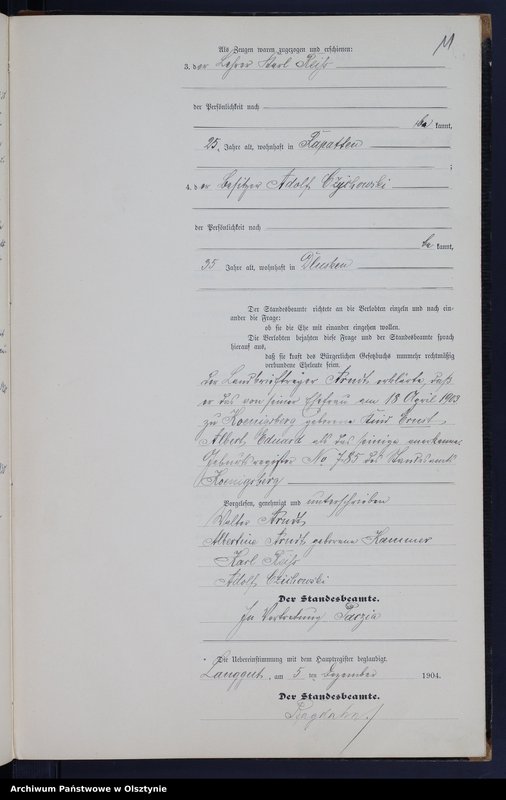 11
Als Zeugen waren zugezogen und erschienen:
3. der Lehrer Karl
der Persönlichkeit nach
bekannt,
25 Jahre alt, wohnhaft in
;
4. der Besitzer Adolf Czichowski
der Persönlichkeit nach
be kannt,
35 Jahre alt, wohnhaft in
Der Standesbeamte richtete an die Verlobten einzeln und nach ein-
ander die Frage:
ob sie die Ehe mit einander eingehen wollen.
Die Verlobten bejahten diese Frage und der Standesbeamte sprach
hierauf aus,
daß sie kraft des Bürgerlichen Gesetzbuchs nunmehr rechtmäßig
verbundene Eheleute seien.
der Landbriefträger Arndt erklärte, daß
er das von seiner Ehefrau am 18 April 1903
zu Koenigsberg geborene Kind Ernst
Albert Eduard als das seinige anerkenne.
Geburtsregister No 785 des Standesamts
Koenigsberg
Vorgelesen, genehmigt und unterschrieben
Walter Arndt
Albertine Arndt geborene Kammer
Karl
Adolf Czichowski
Der Standesbeamte.
In Vertretung
Die Uebereinstimmung mit dem Hauptregister beglaubigt.
Langgut, am 5 ten Dezember 1904.
Der Standesbeamte.
Archiwum Państwowe w Olsztynie